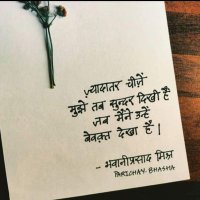 ज़्यादातर चीज़ें
मुझे तब सुन्दर दिखी हैं
जब मैंने उन्हें
बेवक़्त देखा है।
- भवानीप्रसाद मिश्र
PARICHAY BHASHA